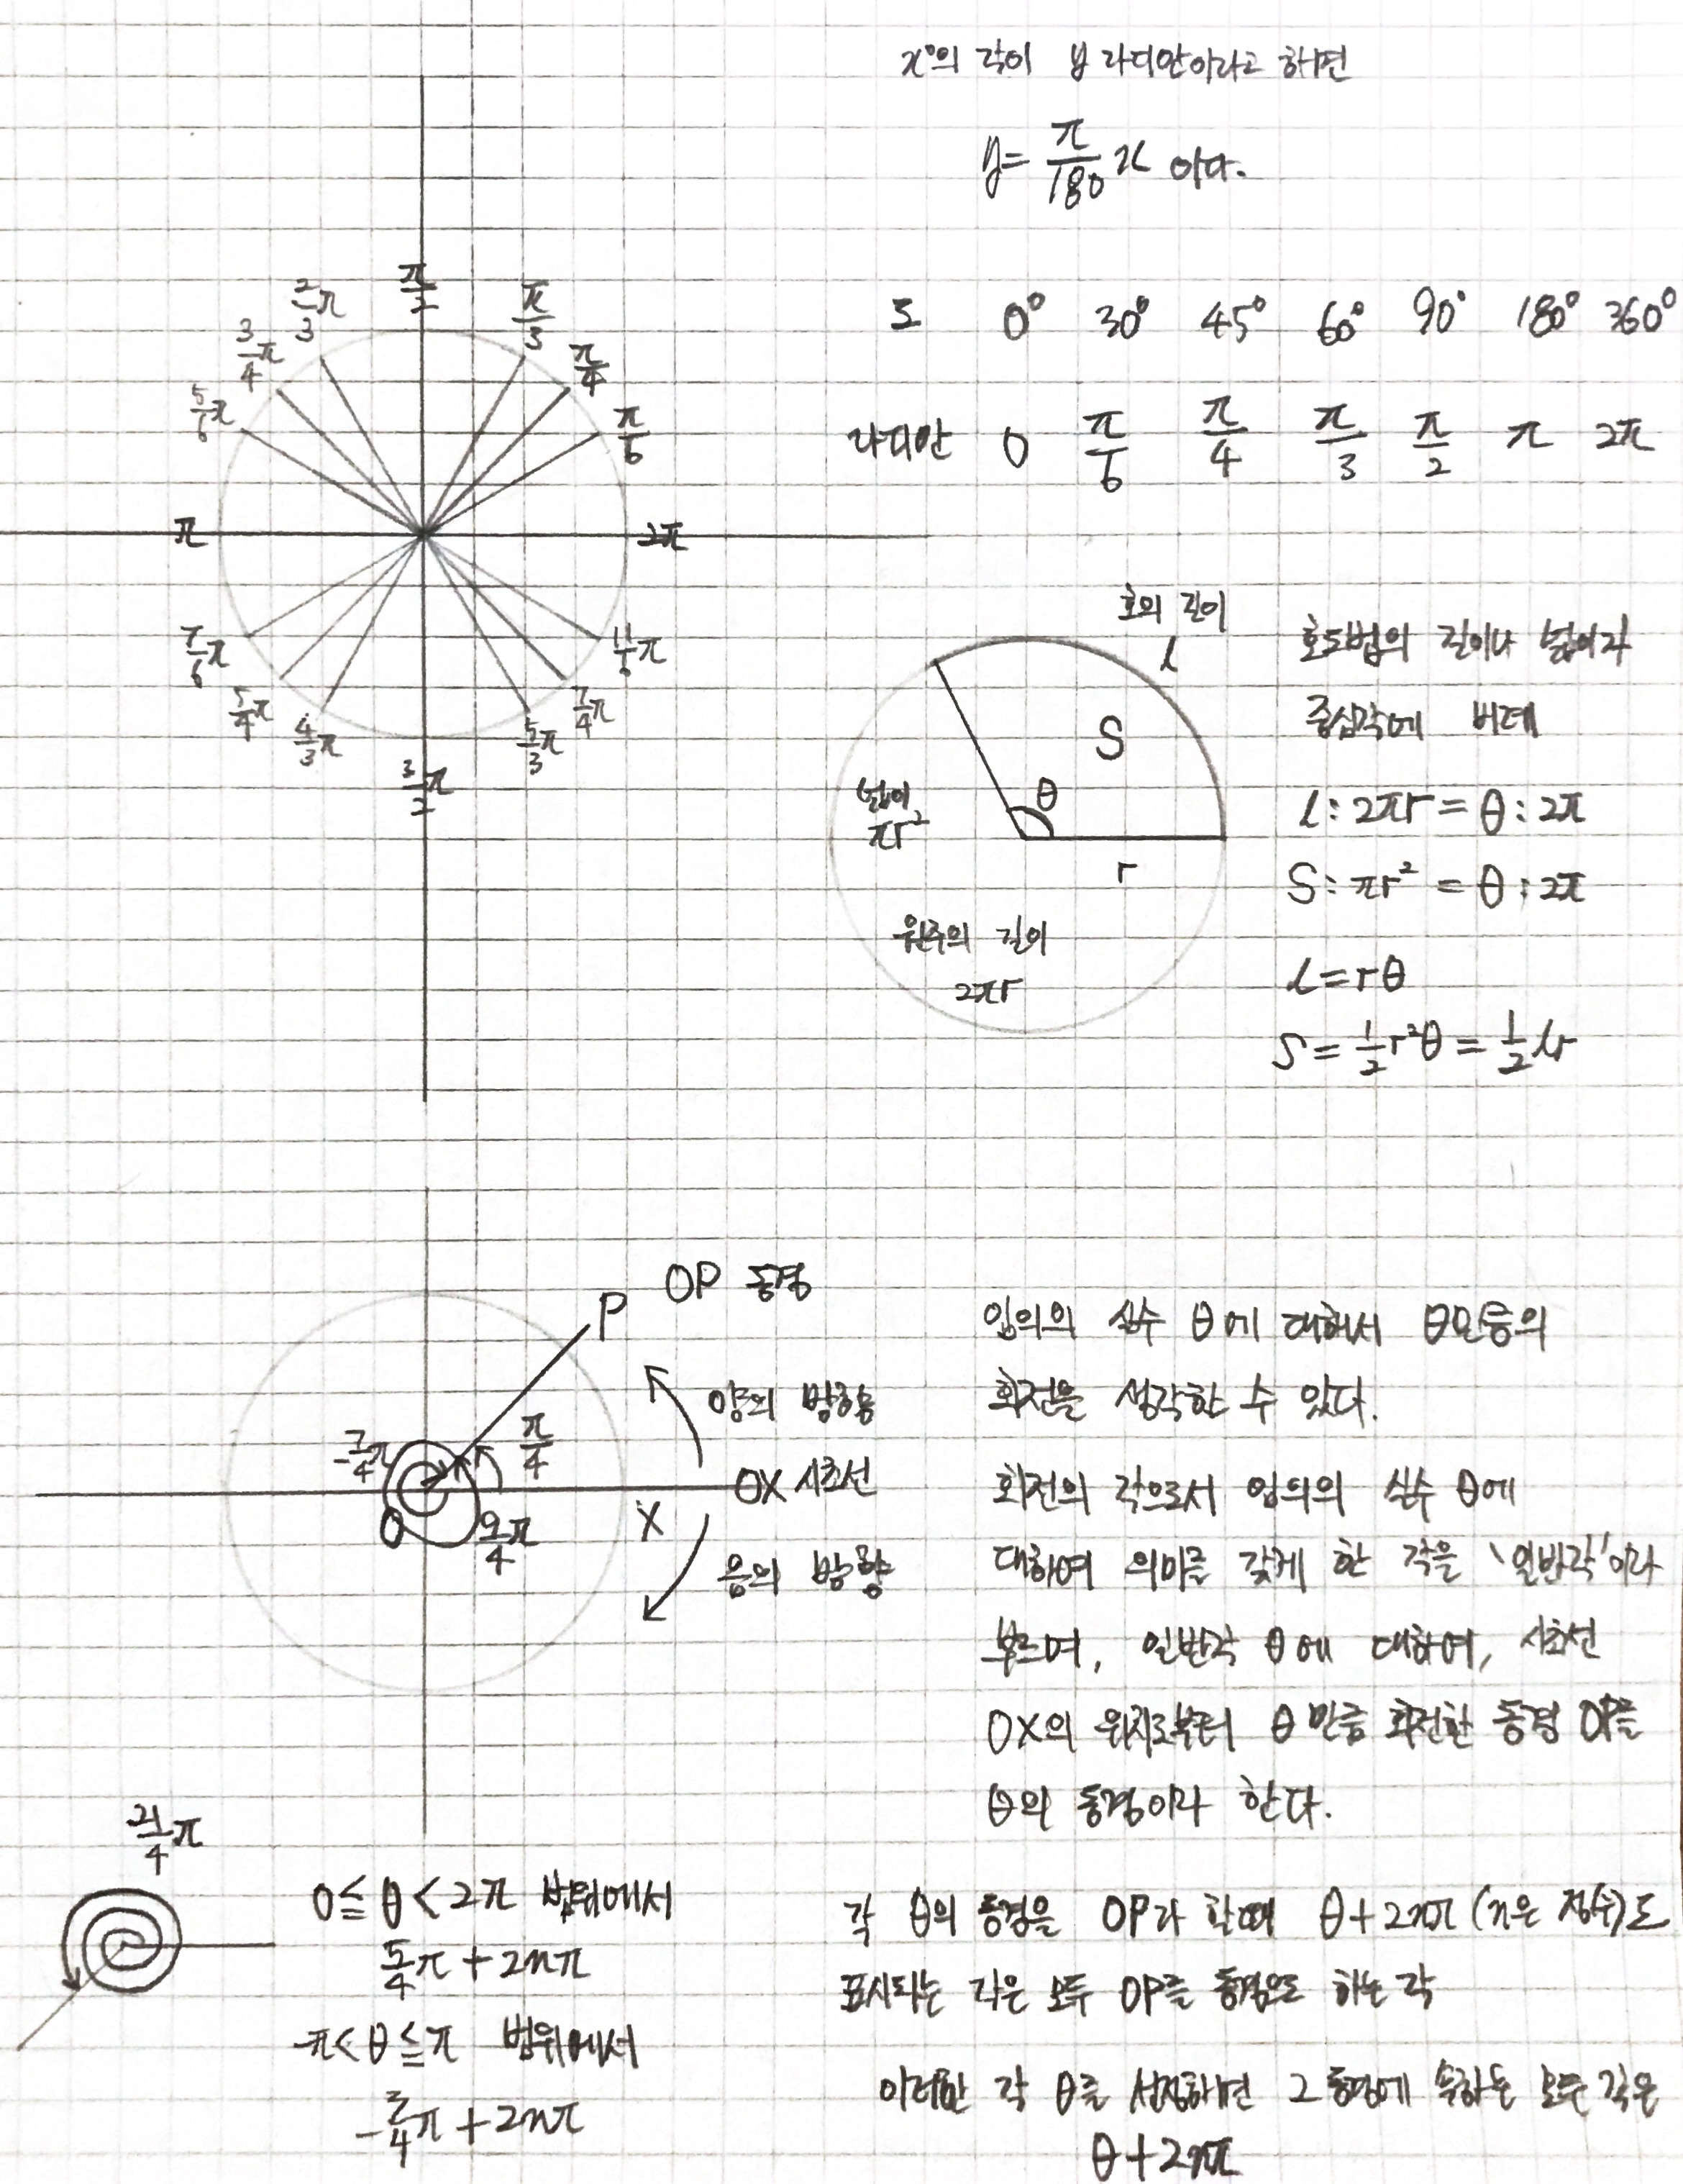 x°의 각이 y 라디안이라고 하면
y = π/180 x 이다.
π/2
2/3 π
π/3
3/4 π
π/4
5/6 π
π/6
π
2π
7/6 π
11/6 π
5/4 π
7/4 π
4/3 π
5/3 π
3/2 π
도 0° 30° 45° 60° 90° 180° 360°
라디안 0 π/6 π/4 π/3 π/2 π 2π
호의 길이
l
S
θ
넓이
πr²
r
원주의 길이
2πr
호도법의 길이나 넓이가
중심각에 비례
l : 2πr = θ : 2π
S : πr² = θ : 2π
l = rθ
S = 1/2 r²θ = 1/2 lr
OP 동경
P
양의 방향
-7/4 π
π/4
OX 시초선
O
X
9/4 π
음의 방향
임의의 실수 θ에 대해서 θ만큼의
회전을 생각할 수 있다.
회전의 각으로서 임의의 실수 θ에
대하여 의미를 갖게 한 각을 '일반각'이라
부르며, 일반각 θ에 대하여, 시초선
OX의 위치로부터 θ만큼 회전한 동경 OP를
θ의 동경이라 한다.
21/4 π
0 ≦ θ < 2π 범위에서
5/4 π + 2nπ
-π < θ ≦ π 범위에서
-3/4 π + 2nπ
각 θ의 동경을 OP라 할때 θ + 2nπ (n은 정수)로
표시되는 각은 모두 OP를 동경으로 하는 각
이러한 각 θ를 설정하면 그 동경에 속하는 모든 각은
θ + 2nπ